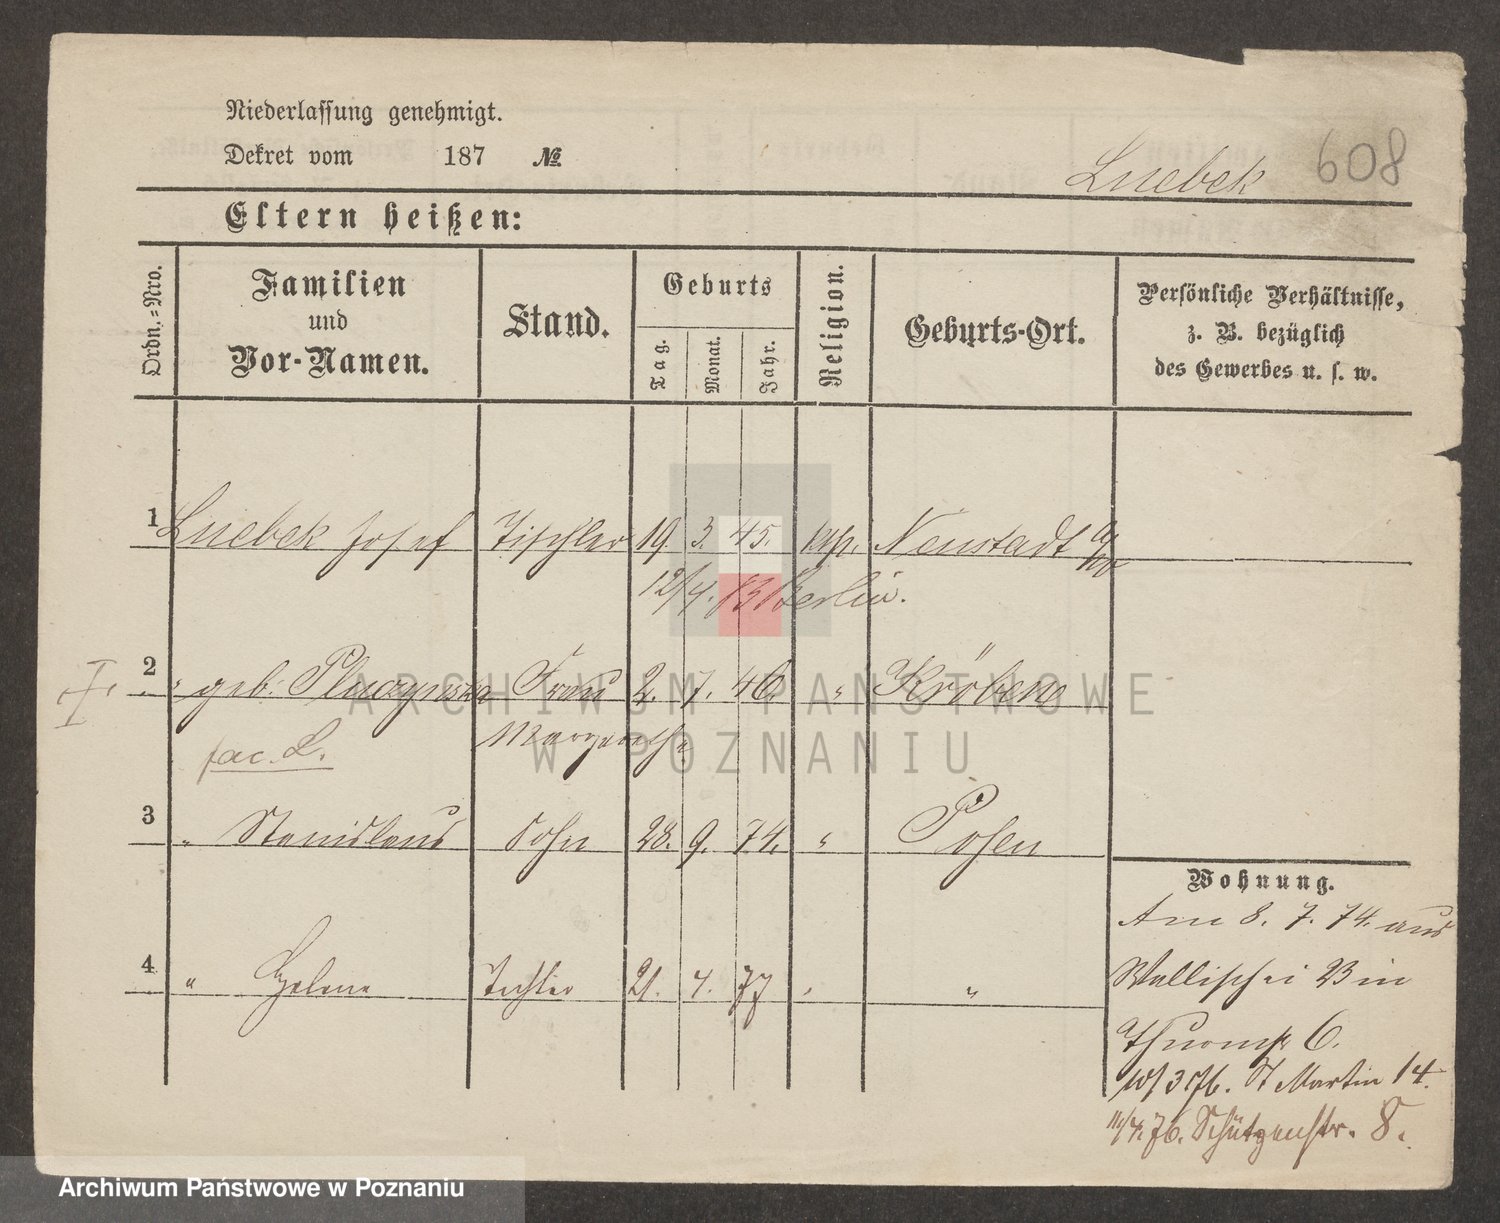 Niederlassung genehmigt.
Dekret vom 187 №
Luebek 608
Eltern heißen:
Ordn.=Nro.
Familien
und
Vor-Namen.
Stand.
Geburts
Tag.
Monat.
Jahr.
Religion.
Geburts-Ort.
Persönliche Verhältnisse,
z. B. bezüglich
des Gewerbes u. s. w.
1 Luebek Josef Tischler 19. 3. 45. kath. Neustadt a/W
12/4. 83 Berlin.
2 " geb. Frau 2. 7. 46. " Kröben
fac. L. Margarethe
3 " Stanislaus Sohn 28. 9. 74. " Posen
4 " Helene Tochter 21. 4. 77 " "
Wohnung.
Am 8. 7. 74. aus
Wallischei 23 in
6.
10/3 76. St Martin 14.
11/4. 76. Schützenstr. 8.
ARCHIWUM PAŃSTWOWE
W POZNANIU
Archiwum Państwowe w Poznaniu